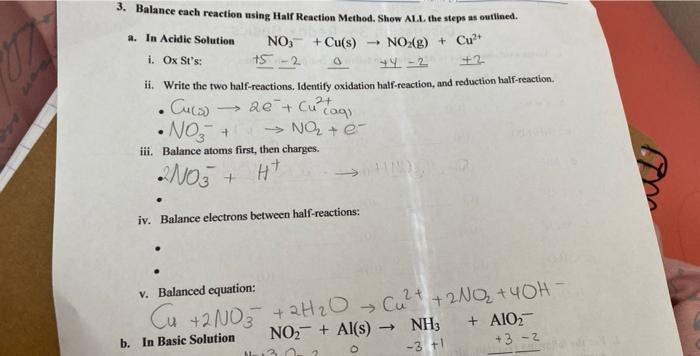 3. Balance each reaction using Half Reaction Method. Show ALL the steps as outlined.
a. In Acidic Solution NO₃⁻ + Cu(s) → NO₂(g) + Cu²⁺
i. Ox St's: +5 -2 0 +4 -2 +2
ii. Write the two half-reactions. Identify oxidation half-reaction, and reduction half-reaction.
• Cu(s) → 2e⁻ + Cu²⁺(aq)
• NO₃⁻ + → NO₂ + e⁻
iii. Balance atoms first, then charges.
• 2NO₃⁻ + H⁺ →
•
iv. Balance electrons between half-reactions:
•
•
v. Balanced equation:
Cu + 2NO₃⁻ + 2H₂O → Cu²⁺ + 2NO₂ + 4OH⁻
b. In Basic Solution NO₂⁻ + Al(s) → NH₃ + AlO₂⁻
0 -3 +1 +3 -2